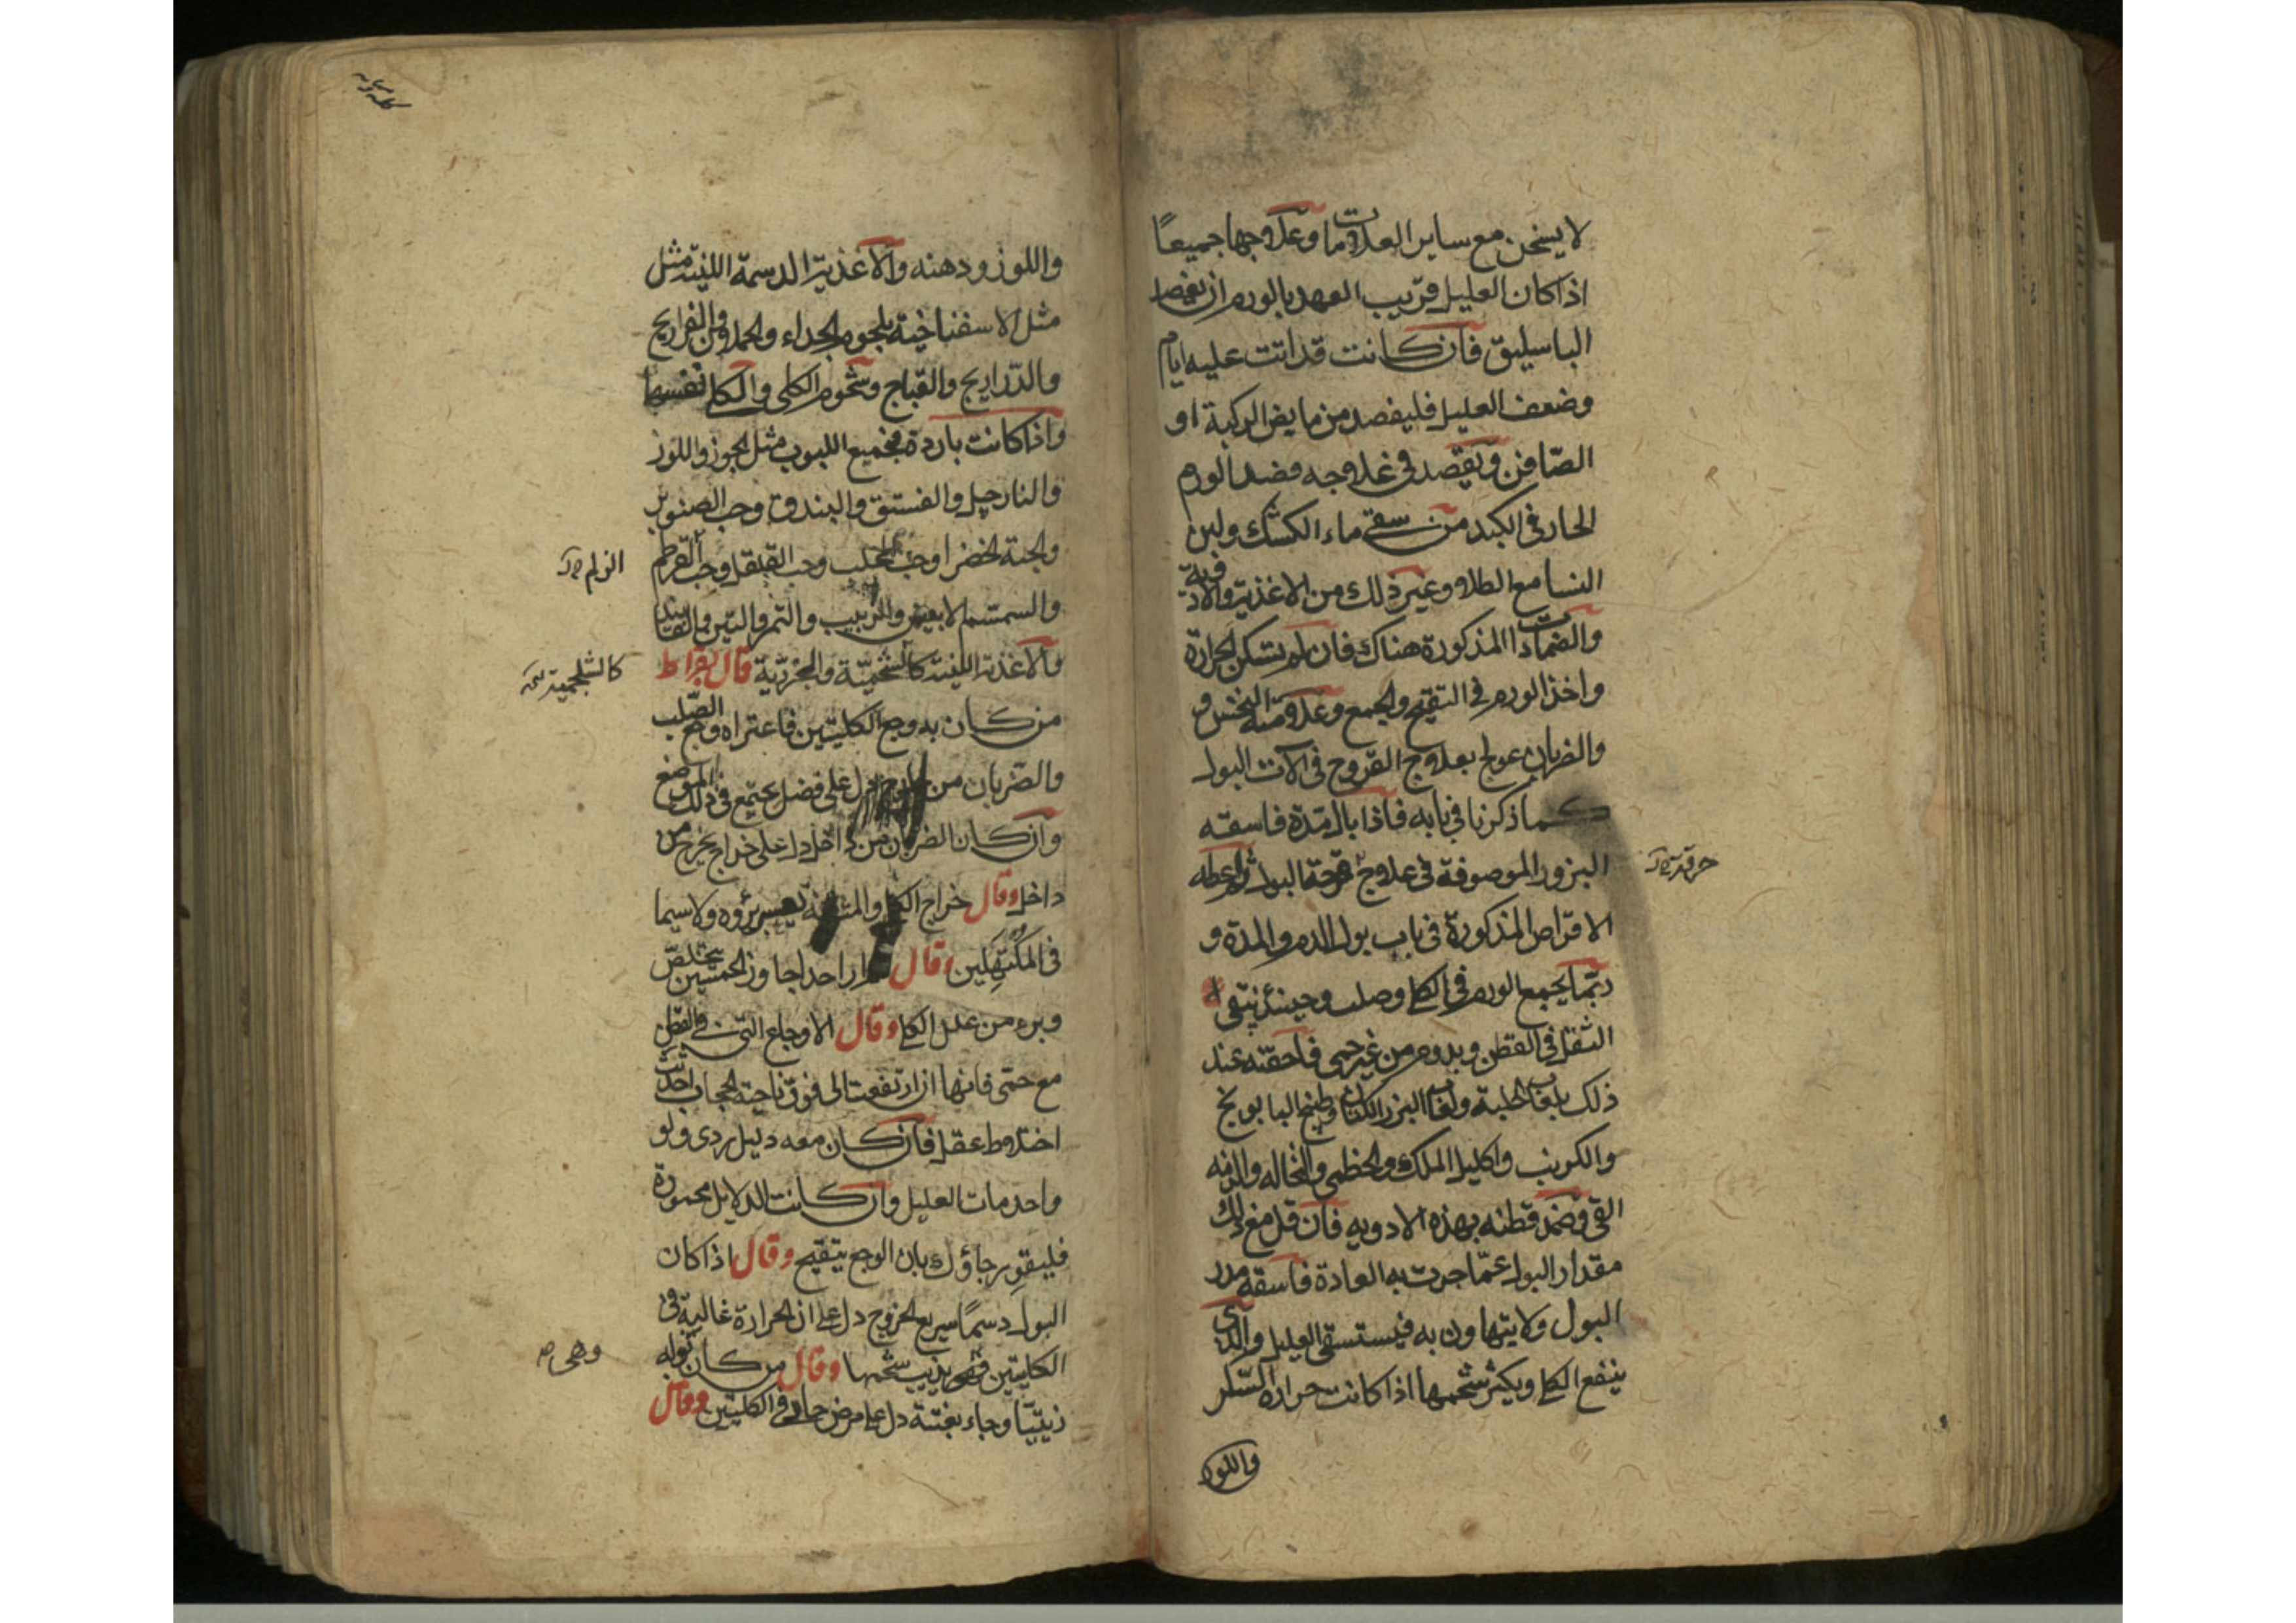 لا يسخن مع ساير العلامات وعلاجها جميعًا
اذا كان العليل قريب العهد بالورم ان يفصد
الباسليق فان كانت قد اتت عليه ايام
وضعف العليل فليفصد من مابض الركبة او
الصّافن ويقصد فى علاجه قصد الورم
الحار فى الكبد من سقى ماء الكشك ولبن
النسا مع الطلا وغير ذلك من الاغذية والادوية
والضمادات المذكورة هناك فان لم تسكن الحرارة
واخذ الورم فى التقيح والجمع وعلامته النخس و
والضربان عولج بعلاج القروح فى الات البول
كما ذكرنا فى بابه فاذا بال المدة فاسقه
البزور الموصوفة فى علاج حرقة البول واعطه
حرقة
الاقراص المذكورة فى باب بول الدم والمدة و
ربّما يجمع الورم فى الكلى وصلب وحينئذ يبقى
الثقل فى القطن ويدوم من غير حمى فاحقنه عند
ذلك بلعاب الحلبة ولعاب البزر الكتان وطبيخ البابونج
والكرنب واكليل الملك والخطمى والنخاله والزمه
القى وضمد قطنه بهذه الادويه فان قل مع ذلك
مقدار البول عمّا جرت به العادة فاسقه مدر
البول ولا يتهاون به فيستسقى العليل والذى
ينفع الكلى ويكثر شحمها اذا كانت حرارة السّكر
واللوز
واللوز ودهنه والاغذية الدسمة اللينة مثل
مثل الاسفناخية بلحوم الجداء والحملان والفراريج
والدّراريج والقباج وشحوم الكلى والكلى نفسها
واذا كانت باردة فجميع اللبوب مثل الجوز واللوز
والنارجيل والفستق والبندق وحب الصنوبر
والحبة الخضرا وحب المحلب وحب القلقل وحب القرطم
الزلم
والسمسم الابيض والزبيب والتمر والتين والفانيد
والاغذية اللينة كالشحميّة والجزريّة قال بقراط
كالشلجمية
من كان به وجع الكليتين فاعتراه وجع الصّلب
والضربان من خارج دل على فضل يجتمع فى ذلك الموضع
وان كان الضربان من داخل دل على خراج يخرج من
داخل وقال خراج الكلى والمثانة يعسر برؤه ولا سيما
فى المكتهلين وقال لم ار احدا جاوز الخمسين يتخلّص
وبرء من علل الكلى وقال الاوجاع التى فى القطن
مع حمّى فانها اذا ارتفعت الى فوق ناحية الحجاب احدثت
اختلاط عقل فان كان معه دليل ردى ولو
واحد مات العليل وان كانت الدلايل محمودة
فليقو رجاؤك بان الوجع يتقيح وقال اذا كان
البول دسمًا سريع الخروج دل على ان الحرارة غالبة فى
الكليتين فهى يذيب شحمها وقال من كان بوله
وهى
زيتيّا وجاء بغتة دل على مرض حاد فى الكليتين وقال